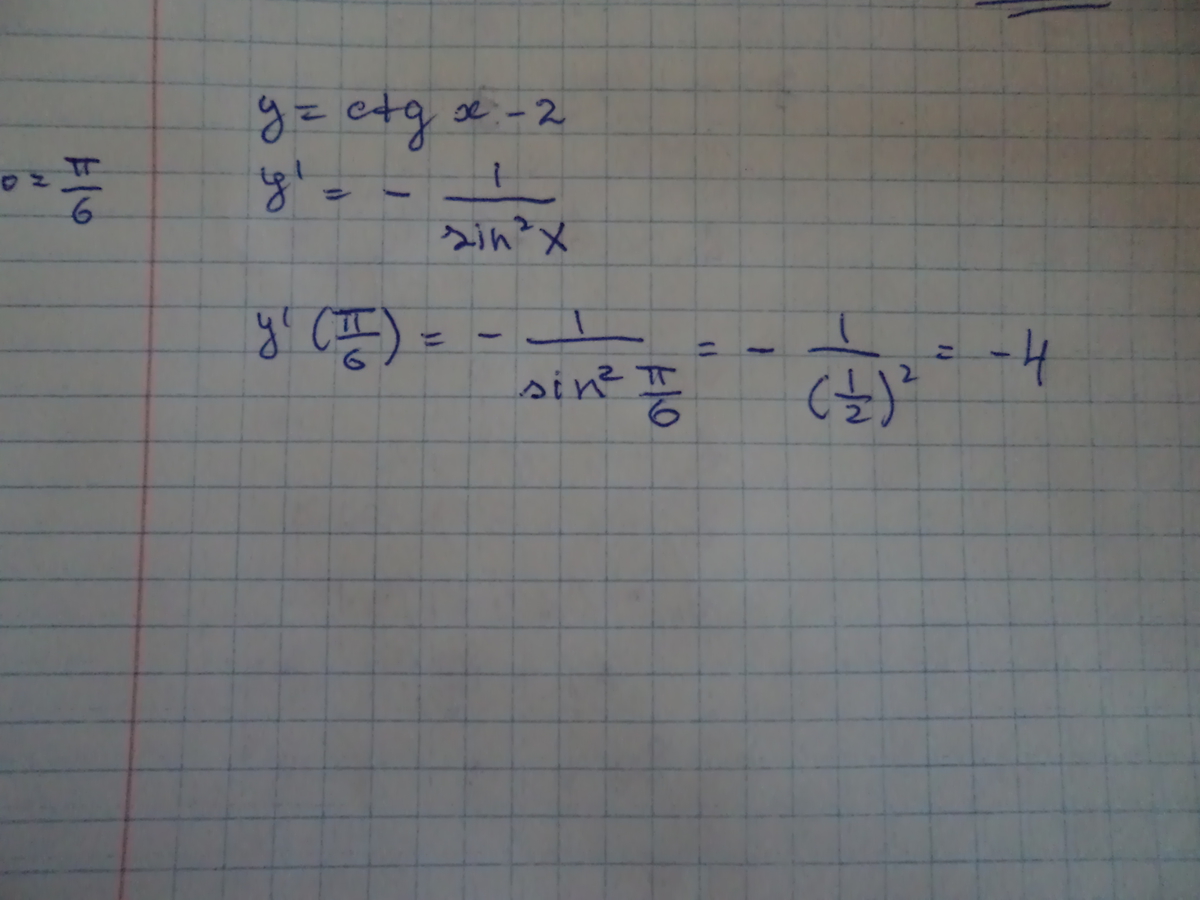 y = ctg x - 2
0 = π/6
y' = - 1/sin²x
y'(π/6) = - 1/sin² π/6 = - 1/(1/2)² = -4